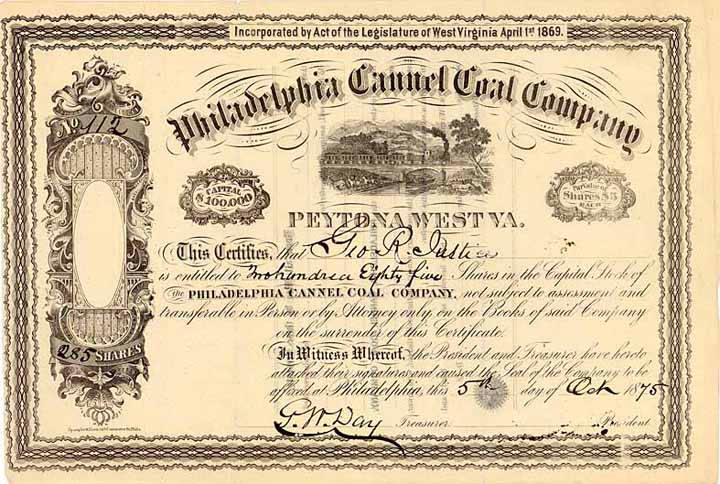 Incorporated by Act of the Legislature of West Virginia April 1st 1869.
Philadelphia Cannel Coal Company
No 112
CAPITAL
$100,000
Par value of
Shares $5
EACH
PEYTONA WEST VA.
This Certifies, that Geo R Justice
is entitled to Two hundred Eighty five Shares in the Capital Stock of
the PHILADELPHIA CANNEL COAL COMPANY, not subject to assessment and
transferable in Person or by Attorney only, on the Books of said Company
on the surrender of this Certificate.
285 SHARES
In Witness Whereof, the President and Treasurer have hereto
attached their signatures and caused the Seal of the Company to be
affixed at Philadelphia, this 5th day of Oct 1875
G. W. Day Treasurer President